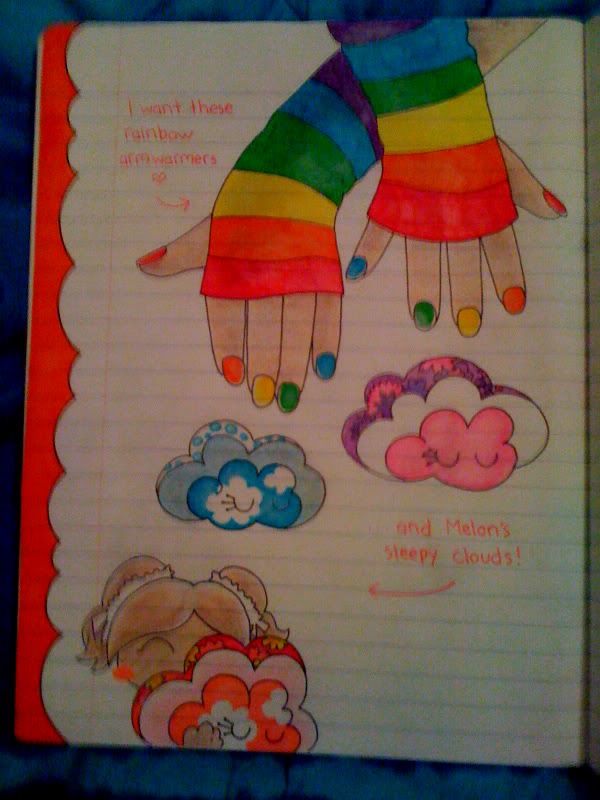 I want these
rainbow
armwarmers
and Melon's
sleepy clouds!